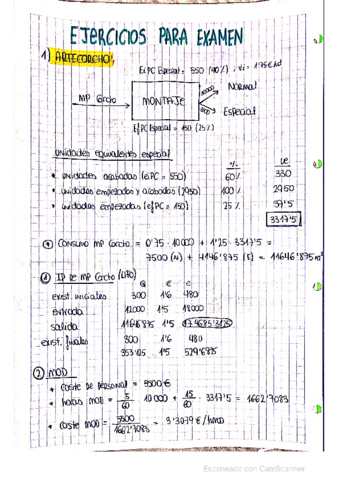 EJERCICIOS PARA EXAMEN
1) ARTECORCHO
Ei PC Especial = 550 (40%) ; Vi = 1'75€/ud
Normal
MP Corcho
MONTAJE
Especial
Ef PC Especial = 150 (25%)
Unidades equivalentes especial
% UE
• unidades acabadas (eiPC = 550) 60% 330
• unidades empezadas y acabadas (2950) 100% 2950
• unidades empezadas (efPC = 150) 25% 37'5
3317'5
Consumo MP Corcho = 0'75 · 10000 + 1'25 · 3317'5 =
7500 (N) + 4146'875 (E) = 11646'875 m²
① IP de MP Corcho (LIFO)
Q € C
exist. iniciales 300 1'6 480
entrada 12000 1'5 18000
salida 11646'875 1'5 17468'3125
exist. finales 300 1'6 480
353'125 1'5 529'6875
② MOD
• coste de personal = 5500€
• horas MOD = 5/60 · 10000 + 15/60 · 3317'5 = 1662'7083
• coste MOD = 5500/1662'7083 = 3'3079 €/hmod
Escaneado con CamScanner